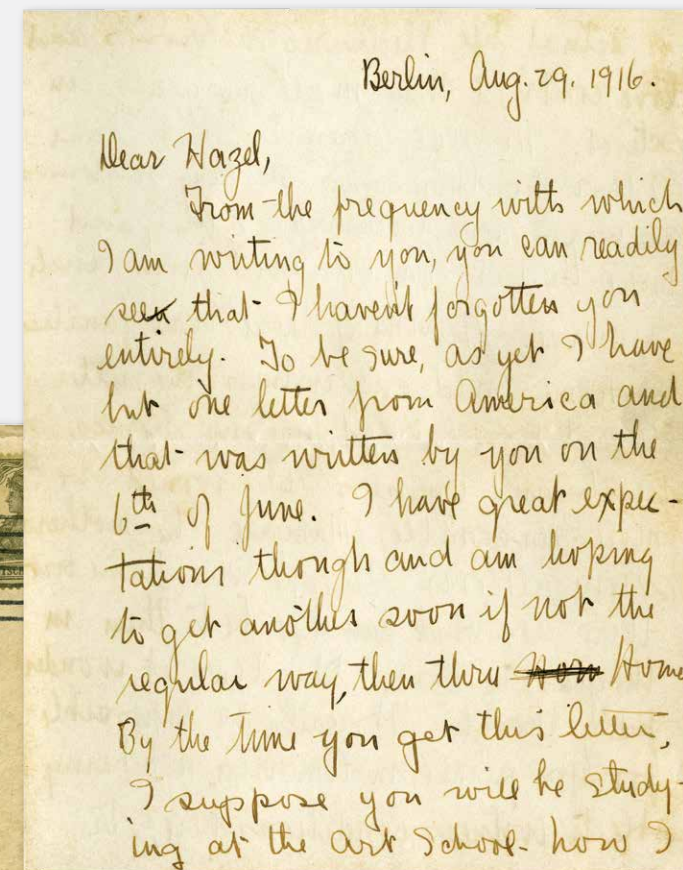 Berlin, Aug. 29. 1916.
Dear Hazel,
From the frequency with which
I am writing to you, you can readily
see that I haven't forgotten you
entirely. To be sure, as yet I have
but one letter from America and
that was written by you on the
6th of June. I have great expec-
tations though and am hoping
to get another soon if not the
regular way, then thru Home
By the time you get this letter,
I suppose you will be study-
ing at the Art School - how I